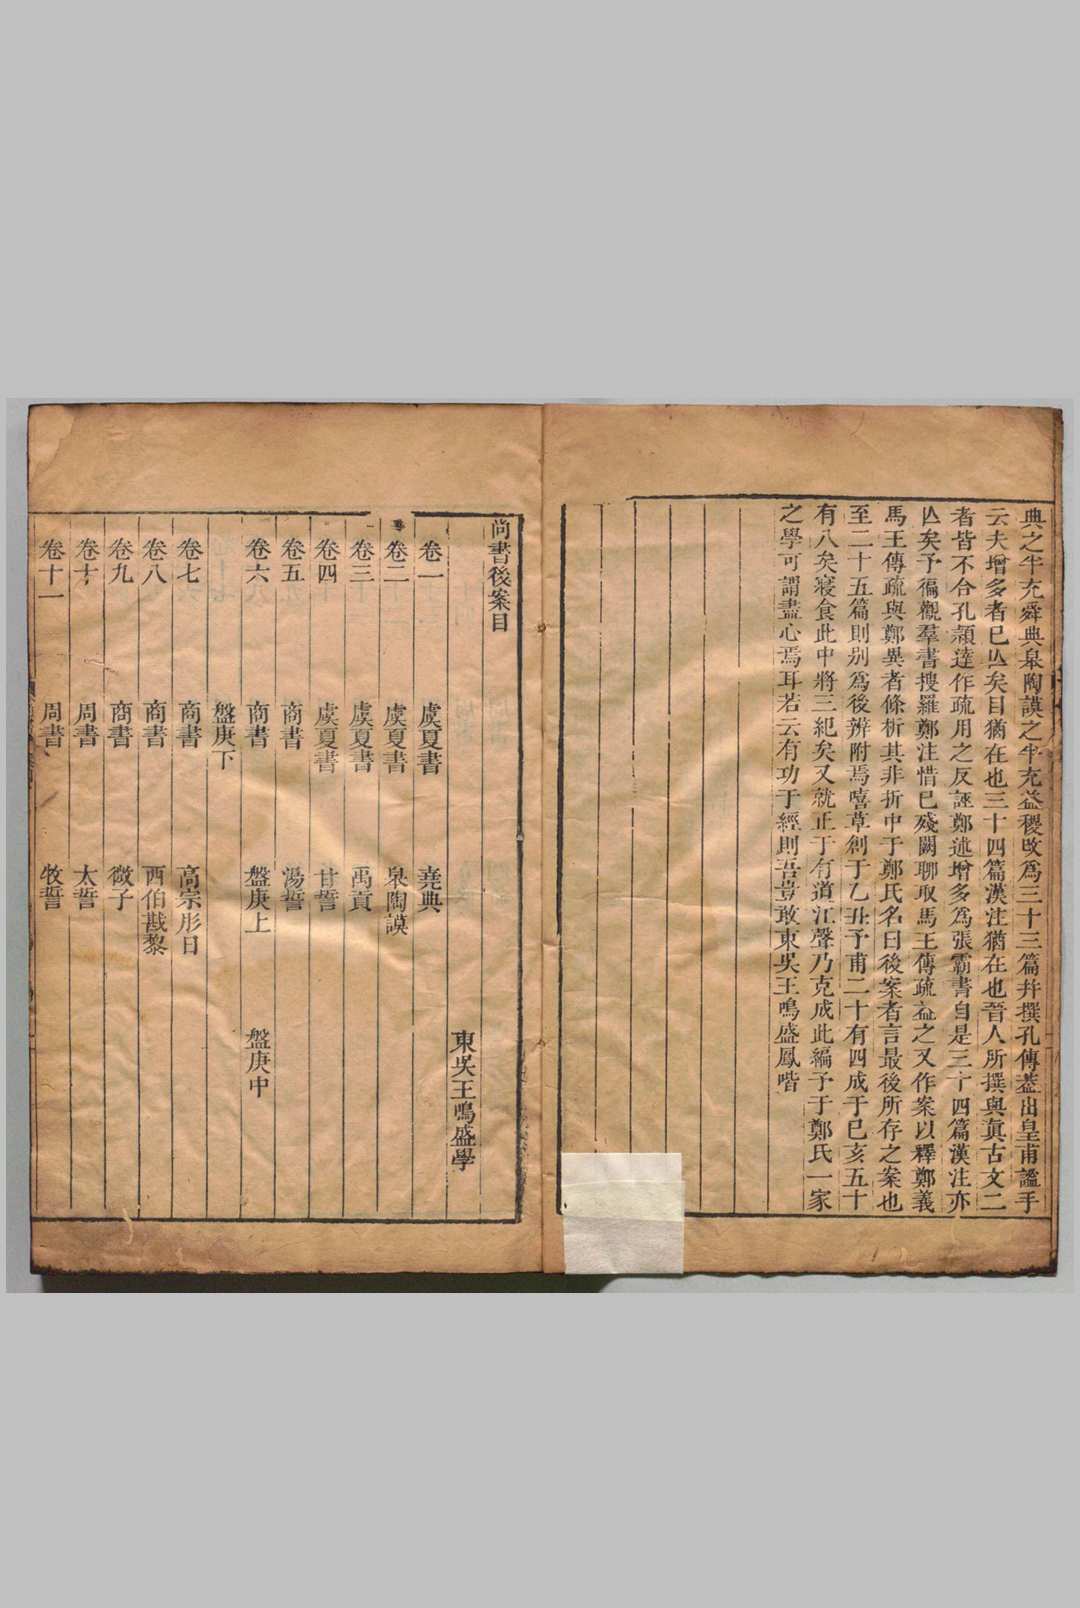 典之半充舜典皐陶謨之半充益稷改爲三十三篇幷撰孔傳葢出皇甫謐手
云夫增多者已亾矣目猶在也三十四篇漢注猶在也晉人所撰與眞古文二
者皆不合孔頴達作疏用之反誣鄭述增多爲張霸書自是三十四篇漢注亦
亾矣予徧觀羣書搜羅鄭注惜已殘闕聊取馬王傳疏益之又作案以釋鄭義
馬王傳疏與鄭異者條析其非折中于鄭氏名曰後案者言最後所存之案也
至二十五篇則别爲後辨附焉嘻草創于乙丑予甫二十有四成于己亥五十
有八矣寢食此中將三紀矣又就正于有道江聲乃克成此編予于鄭氏一家
之學可謂盡心焉耳若云有功于經則吾豈敢東吳王鳴盛鳳喈
尚書後案目
東吳王鳴盛學
卷一 虞夏書 堯典
卷二 虞夏書 皐陶謨
卷三 虞夏書 禹貢
卷四 虞夏書 甘誓
卷五 商書 湯誓
卷六 商書 盤庚上 盤庚中
盤庚下
卷七 商書 高宗肜日
卷八 商書 西伯戡黎
卷九 商書 微子
卷十 周書 太誓
卷十一 周書 牧誓